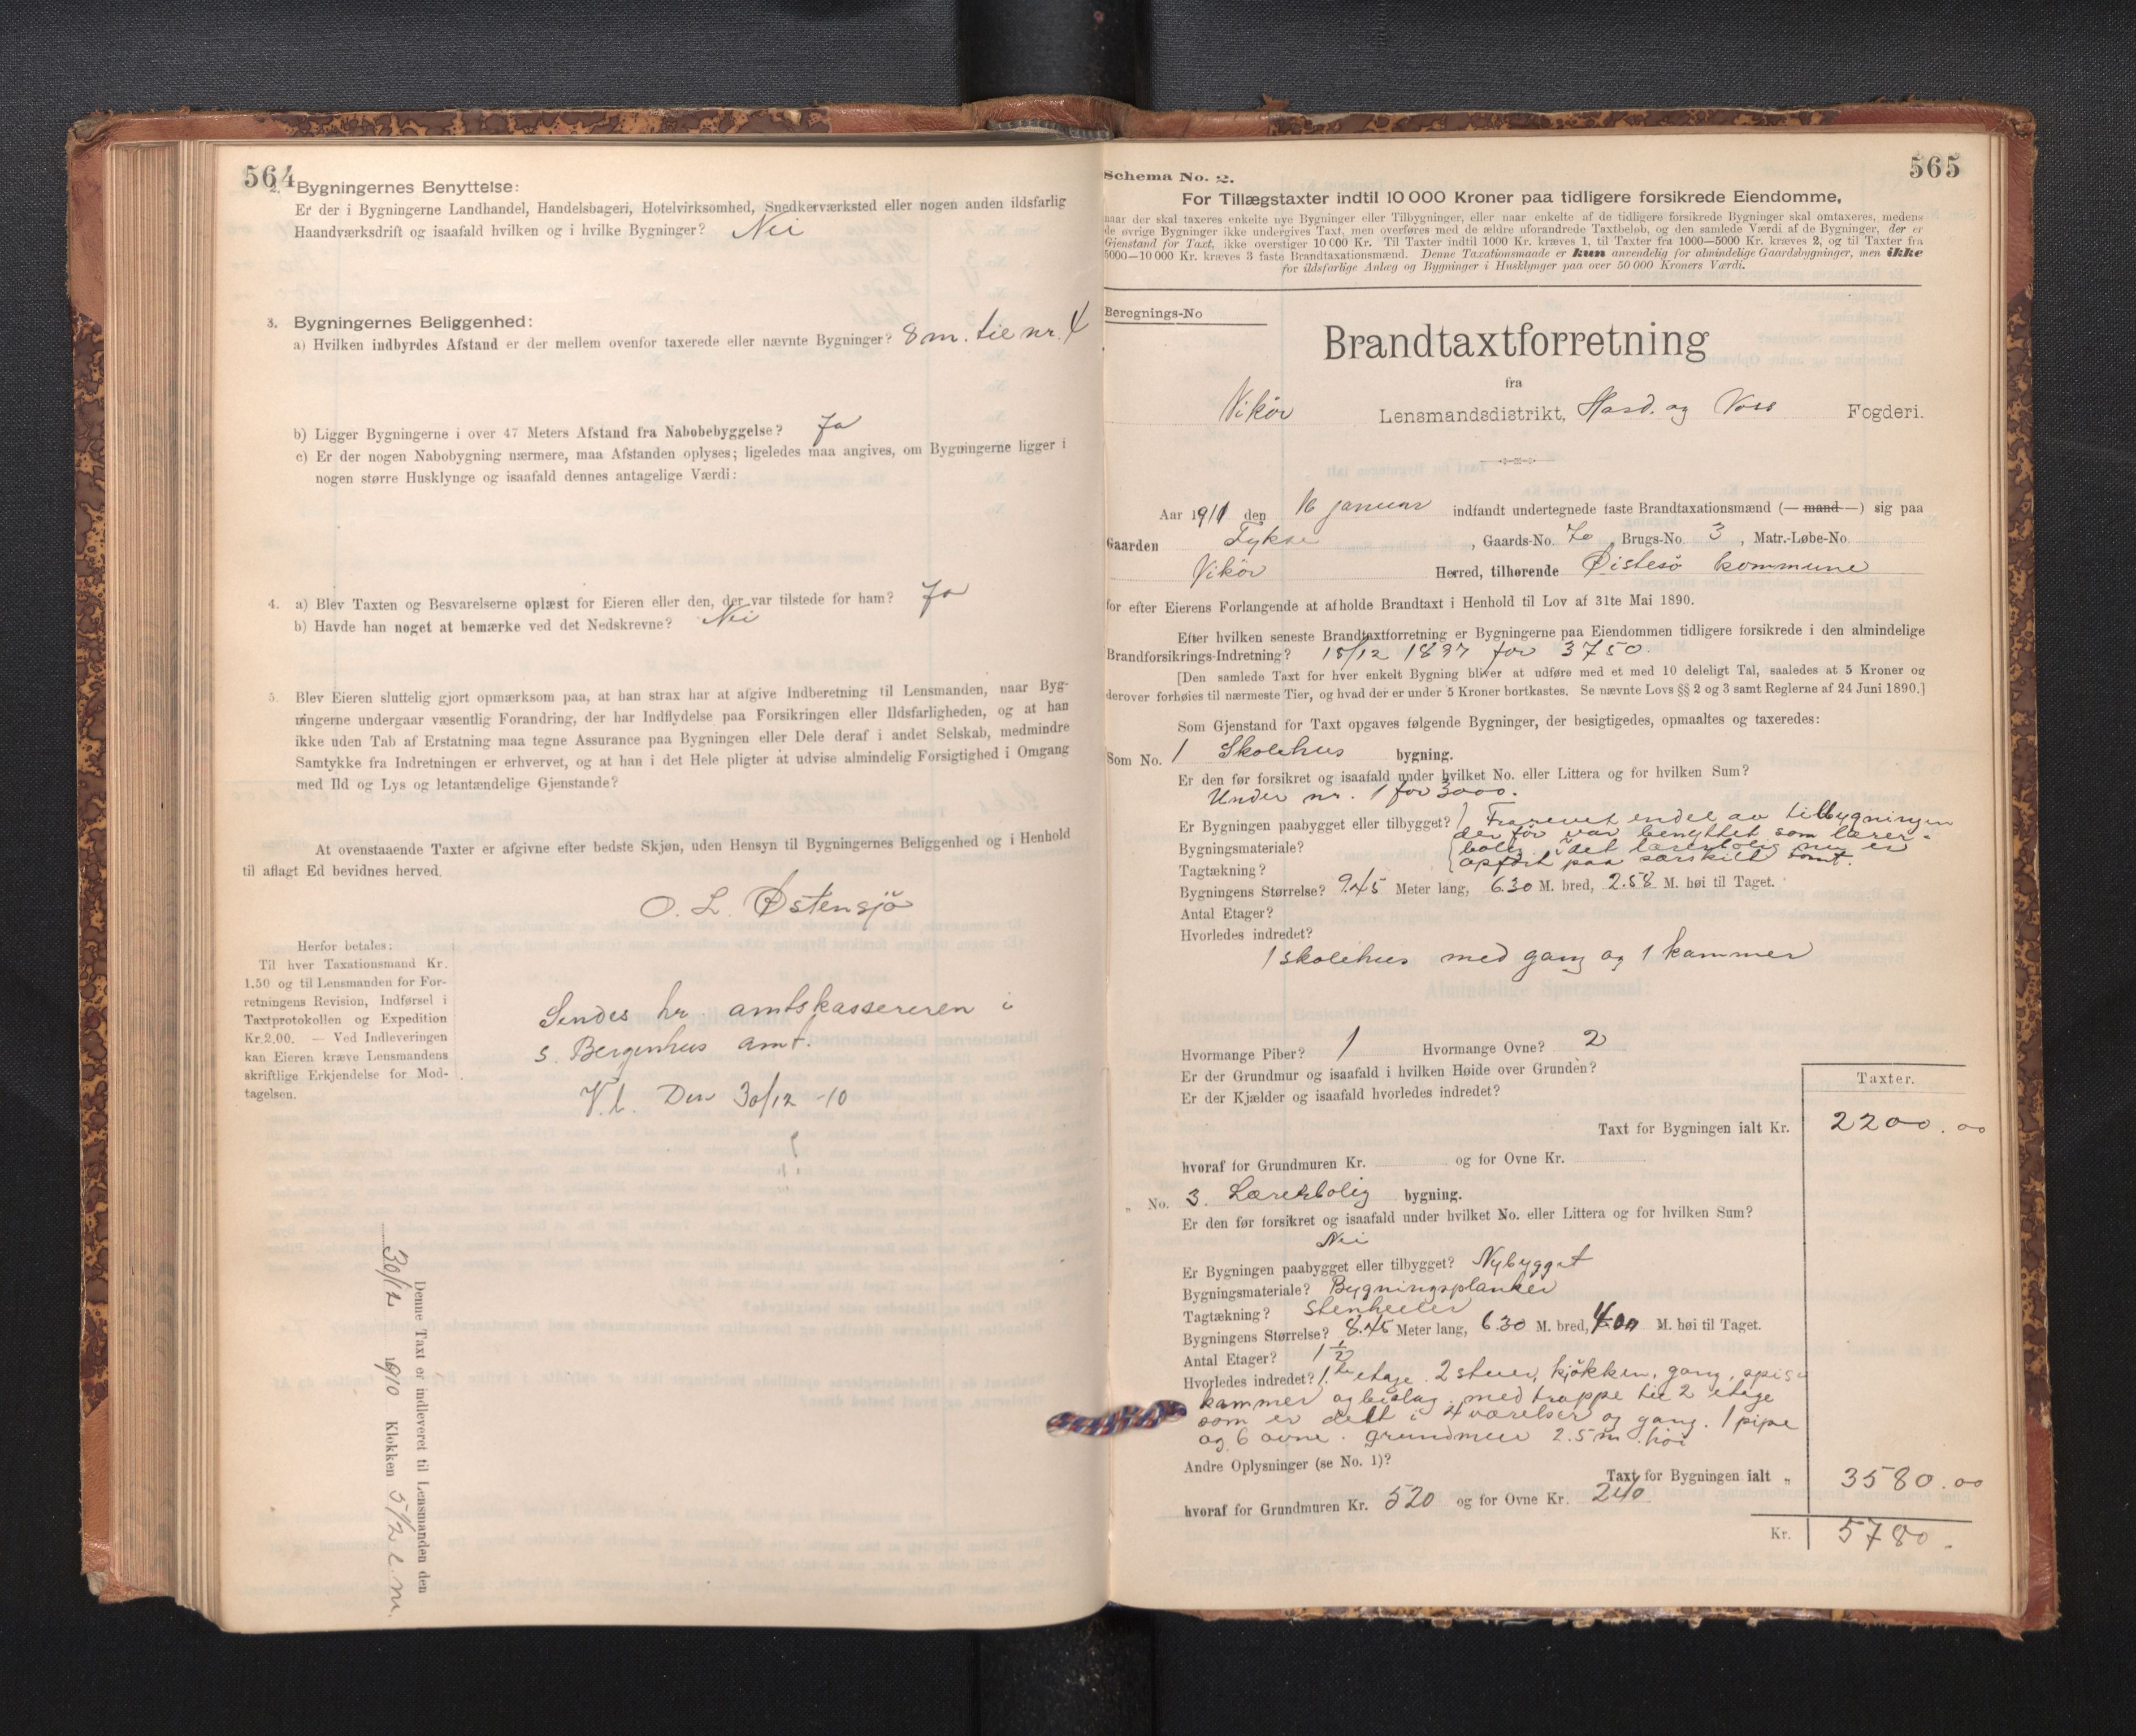 564
2. Bygningernes Benyttelse:
Er der i Bygningerne Landhandel, Handelsbageri, Hotelvirksomhed, Snedkerværksted eller nogen anden ildsfarlig
Haandværksdrift og isaafald hvilken og i hvilke Bygninger? Nei
3. Bygningernes Beliggenhed:
a) Hvilken indbyrdes Afstand er der mellem ovenfor taxerede eller nævnte Bygninger? 8 m. til nr. 4
b) Ligger Bygningerne i over 47 Meters Afstand fra Nabobebyggelse? Ja
c) Er der nogen Nabobygning nærmere, maa Afstanden oplyses; ligeledes maa angives, om Bygningerne ligger i
nogen større Husklynge og isaafald dennes antagelige Værdi:
4. a) Blev Taxten og Besvarelserne oplæst for Eieren eller den, der var tilstede for ham? Ja
b) Havde han noget at bemærke ved det Nedskrevne? Nei
5. Blev Eieren sluttelig gjort opmærksom paa, at han strax har at afgive Indberetning til Lensmanden, naar Byg-
ningerne undergaar væsentlig Forandring, der har Indflydelse paa Forsikringen eller Ildsfarligheden, og at han
ikke uden Tab af Erstatning maa tegne Assurance paa Bygningen eller Dele deraf i andet Selskab, medmindre
Samtykke fra Indretningen er erhvervet, og at han i det Hele pligter at udvise almindelig Forsigtighed i Omgang
med Ild og Lys og letantændelige Gjenstande?
At ovenstaaende Taxter er afgivne efter bedste Skjøn, uden Hensyn til Bygningernes Beliggenhed og i Henhold
til aflagt Ed bevidnes herved.
O. L. Østensjö
Herfor betales:
Til hver Taxationsmand Kr.
1.50 og til Lensmanden for For-
retningens Revision, Indførsel i
Taxtprotokollen og Expedition
Kr. 2,00. — Ved Indleveringen
kan Eieren kræve Lensmandens
skriftlige Erkjendelse for Mod-
tagelsen.
Sendes hr amtskassereren i
S. Bergenhus amt.
V.l. Den 30/12 -10
Denne Taxt er indleveret til Lensmanden den
30/12 1910 Klokken 5 1/2 e. m.
565
Schema No. 2.
For Tillægstaxter indtil 10 000 Kroner paa tidligere forsikrede Eiendomme,
naar der skal taxeres enkelte nye Bygninger eller Tilbygninger, eller naar enkelte af de tidligere forsikrede Bygninger skal omtaxeres, medens
de øvrige Bygninger ikke undergives Taxt, men overføres med de ældre uforandrede Taxtbeløb, og den samlede Værdi af de Bygninger, der er
Gjenstand for Taxt, ikke overstiger 10 000 Kr. Til Taxter indtil 1000 Kr. kræves 1, til Taxter fra 1000—5000 Kr. kræves 2, og til Taxter fra
5000—10 000 Kr. kræves 3 faste Brandtaxationsmænd. Denne Taxationsmaade er kun anvendelig for almindelige Gaardsbygninger, men ikke
for ildsfarlige Anlæg og Bygninger i Husklynger paa over 50 000 Kroners Værdi.
Beregnings-No
Brandtaxtforretning
fra
Vikör Lensmandsdistrikt, Hard. og Voss Fogderi.
Aar 1911 den 16 januar indfandt undertegnede faste Brandtaxationsmænd (— mand —) sig paa
Gaarden Tykse, Gaards-No. 70, Brugs-No. 3, Matr.-Løbe-No.
Vikör Herred, tilhørende Øistesö kommune
for efter Eierens Forlangende at afholde Brandtaxt i Henhold til Lov af 31te Mai 1890.
Efter hvilken seneste Brandtaxtforretning er Bygningerne paa Eiendommen tidligere forsikrede i den almindelige
Brandforsikrings-Indretning? 15/12 1897 for 3750.
[Den samlede Taxt for hver enkelt Bygning bliver at udføre med et med 10 deleligt Tal, saaledes at 5 Kroner og
derover forhøies til nærmeste Tier, og hvad der er under 5 Kroner bortkastes. Se nævnte Lovs §§ 2 og 3 samt Reglerne af 24 Juni 1890.]
Som Gjenstand for Taxt opgaves følgende Bygninger, der besigtigedes, opmaaltes og taxeredes:
Som No. 1 Skolehus bygning.
Er den før forsikret og isaafald under hvilket No. eller Littera og for hvilken Sum?
Under nr. 1 for 3000.
Er Bygningen paabygget eller tilbygget? endel av tilbygningen
der för var benyttet som lærer-
Bygningsmateriale? bolig, idet lærerbolig nu er
opfört paa særskilt tomt.
Tagtækning?
Bygningens Størrelse? 9.45 Meter lang, 6.30 M. bred, 2.58 M. høi til Taget.
Antal Etager?
Hvorledes indredet?
1 skolehus med gang og 1 kammer
Hvormange Piber? 1 Hvormange Ovne? 2
Er der Grundmur og isaafald i hvilken Høide over Grunden?
Er der Kjælder og isaafald hvorledes indredet?
Taxter.
Taxt for Bygningen ialt Kr. 2200.00
hvoraf for Grundmuren Kr. og for Ovne Kr.
„ No. 3. Lærerbolig bygning.
Er den før forsikret og isaafald under hvilket No. eller Littera og for hvilken Sum?
Nei
Er Bygningen paabygget eller tilbygget? Nybygget
Bygningsmateriale? Bygningsplanker
Tagtækning? Stenheller
Bygningens Størrelse? 8.45 Meter lang, 6.30 M. bred, 4.00 M. høi til Taget.
Antal Etager? 1 1/2
Hvorledes indredet? 1ste etage 2 stuer, kjökken, gang, spise
kammer og bislag, med trappe til 2 etage
som er delt i 4 værelser og gang. 1 pipe
og 6 ovne. grundmur 2.5 m. höi
Andre Oplysninger (se No. 1)?
Taxt for Bygningen ialt „ 3580.00
hvoraf for Grundmuren Kr. 520 og for Ovne Kr. 240
Kr. 5780.